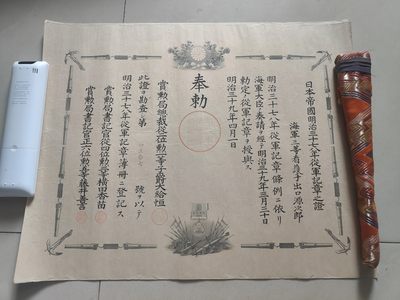 日本帝國明治三十七八年從軍記章之證
海軍三等看護手出口源次郎
明治三十七八年從軍記章條例ニ依リ
海軍大臣ノ奏請ヲ經テ明治三十九年三月三十日
勅定ノ從軍記章ヲ授與ス
明治三十九年四月一日
奉勅
賞勲局總裁從二位勲一等子爵大給恒
此證ヲ勘査シ第 號ヲ以テ
明治三十七八年從軍記章簿冊ニ登記ス
賞勲局書記官從四位勲三等横田香苗
賞勲局書記官正六位勲六等藤井善言